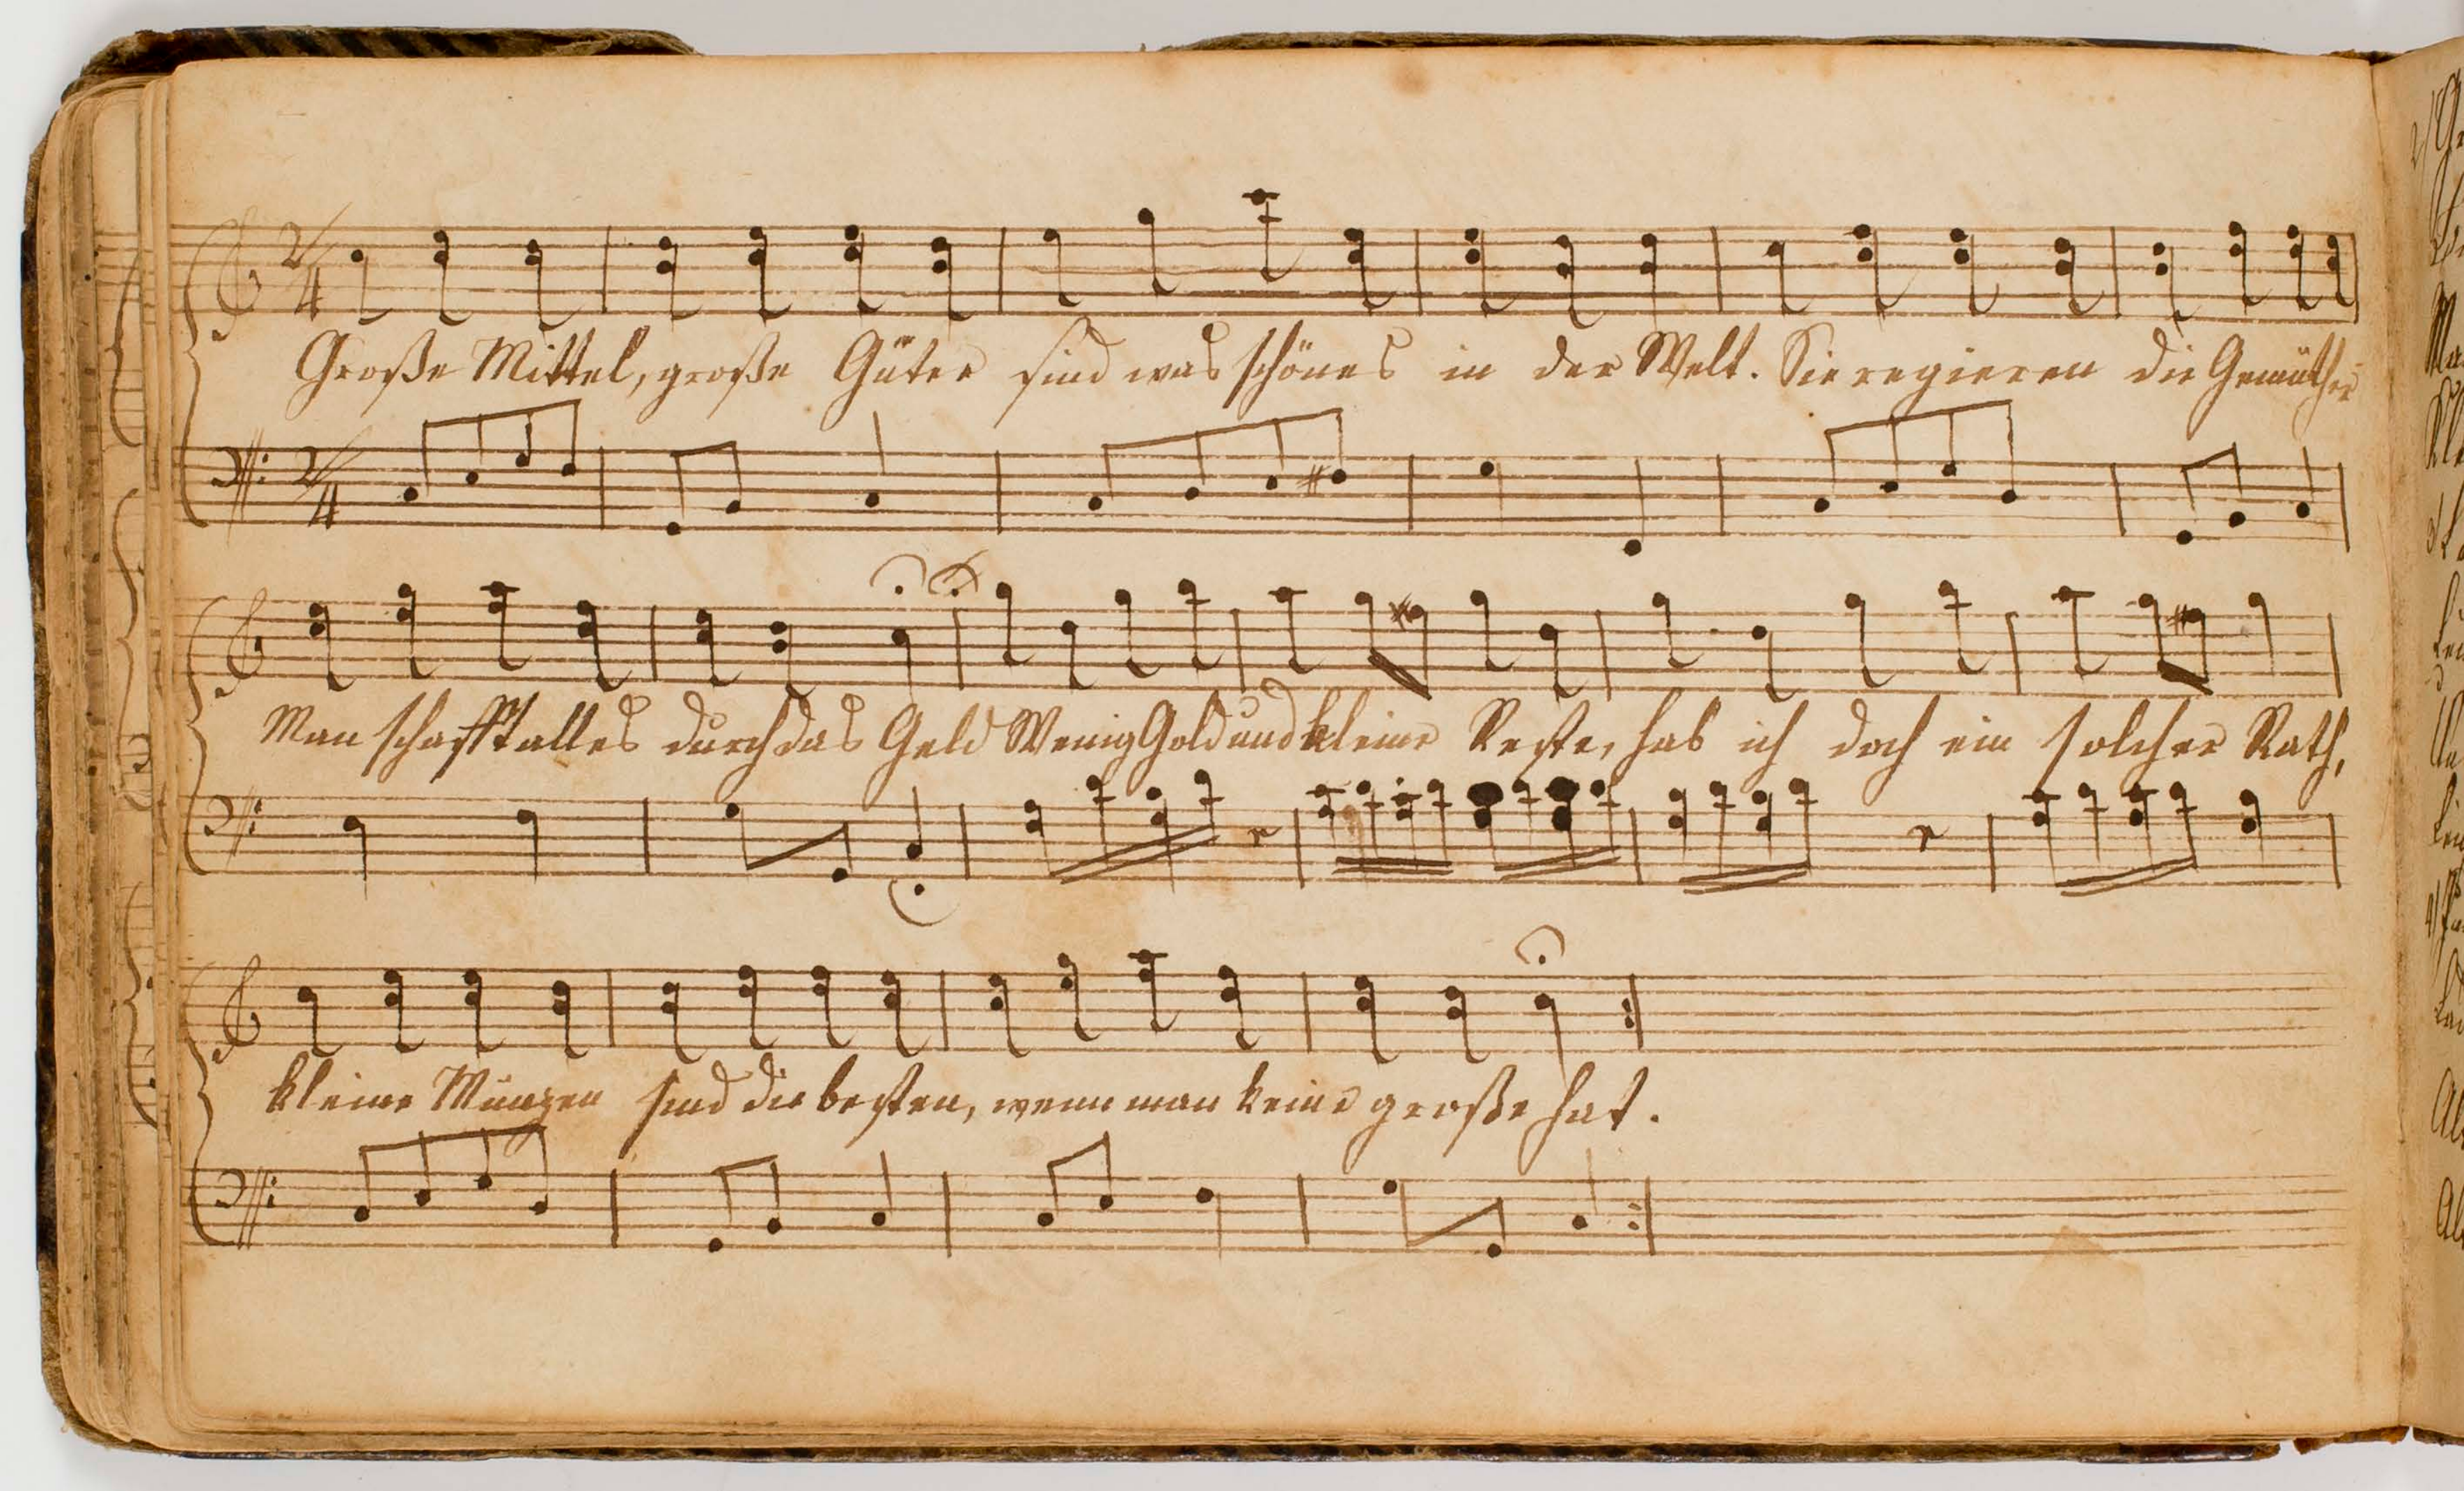 2/4
Große Mittel, große Güter sind was schönes in der Welt. Sie regieren die Gemüther
2/4
Man schafft alles durch das Geld Wenig Gold und kleine Reste, hab ich doch ein solcher Rath,
kleine Münzen sind die besten, wenn man keine große hat.